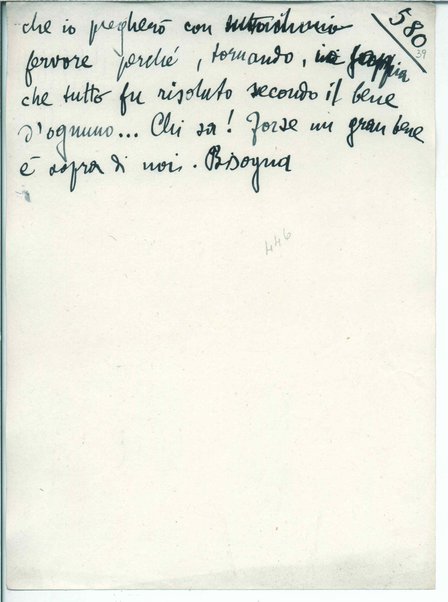 580
39
che io pregherò con
fervore perché, tornando, io sappia
che tutto fu risoluto secondo il bene
d'ognuno... Chi sa! Forse un gran bene
è sopra di noi. Bisogna
446